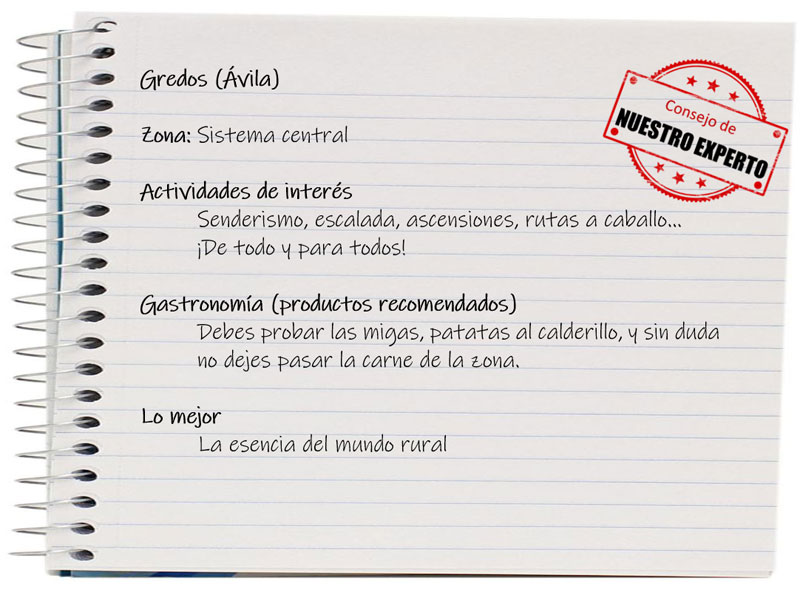 Gredos (Ávila)
Consejo de
NUESTRO EXPERTO
Zona: Sistema central
Actividades de interés
Senderismo, escalada, ascensiones, rutas a caballo...
¡De todo y para todos!
Gastronomía (productos recomendados)
Debes probar las migas, patatas al calderillo, y sin duda
no dejes pasar la carne de la zona.
Lo mejor
La esencia del mundo rural